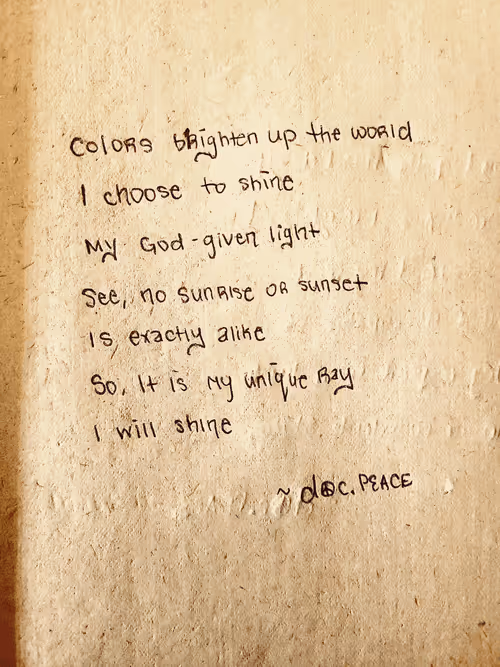 Colors brighten up the world
I choose to shine
My God-given light
See, no sunrise or sunset
Is exactly alike
So, It is my unique Ray
I will shine
~ doc. PEACE